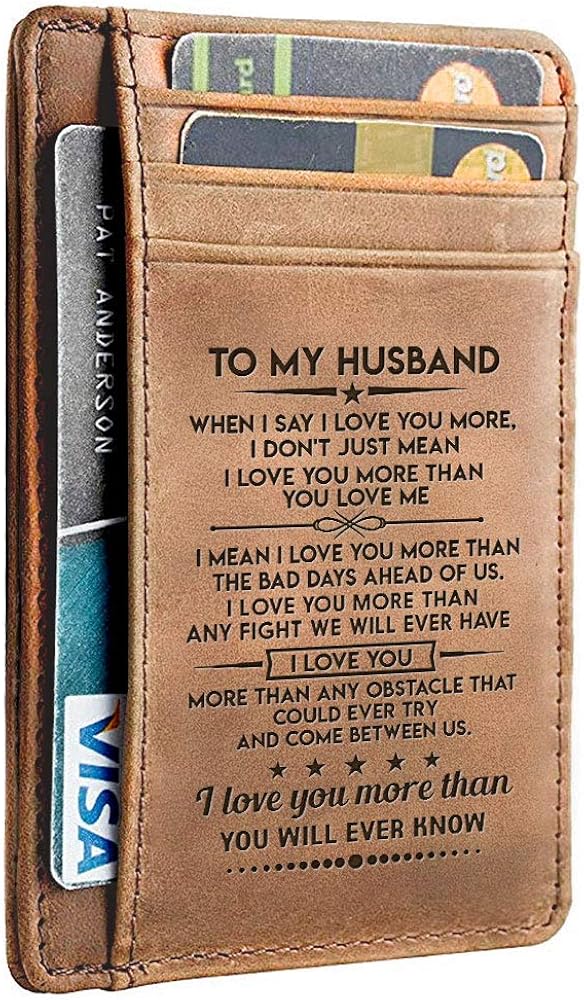 TO MY HUSBAND
WHEN I SAY I LOVE YOU MORE,
I DON'T JUST MEAN
I LOVE YOU MORE THAN
YOU LOVE ME
I MEAN I LOVE YOU MORE THAN
THE BAD DAYS AHEAD OF US.
I LOVE YOU MORE THAN
ANY FIGHT WE WILL EVER HAVE
I LOVE YOU
MORE THAN ANY OBSTACLE THAT
COULD EVER TRY
AND COME BETWEEN US.
I love you more than
YOU WILL EVER KNOW
PAT ANDERSON
VISA